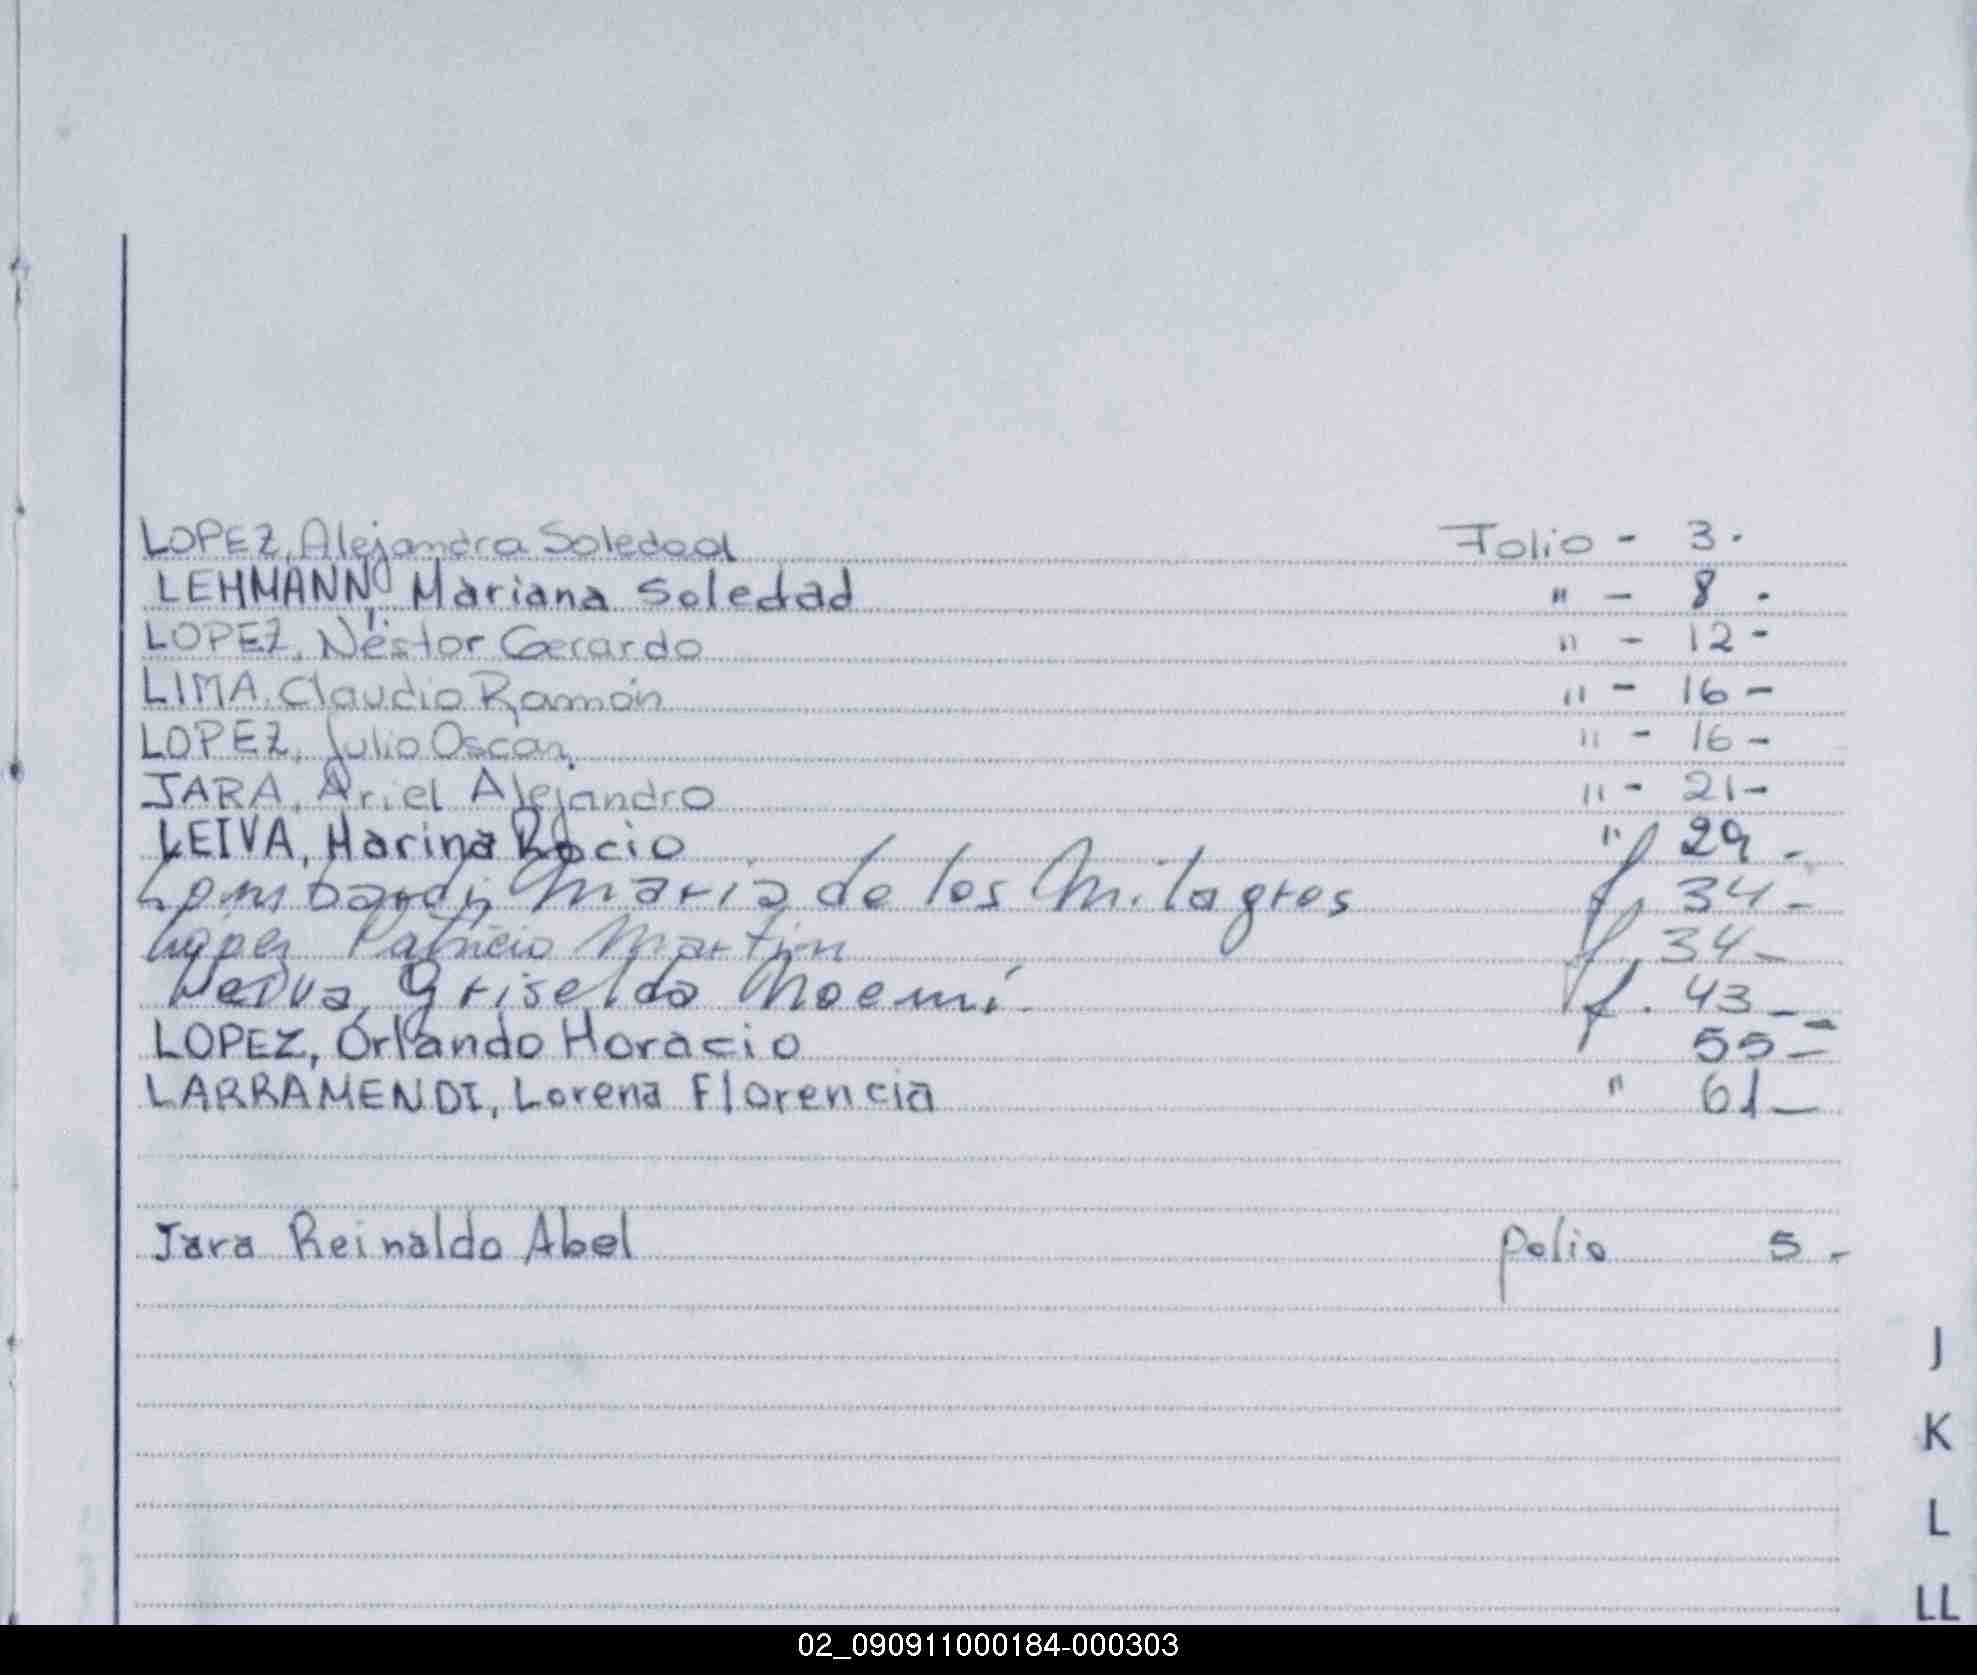 LOPEZ, Alejandra Soledad Folio - 3.
LEHMANN, Mariana Soledad " - 8 .
LOPEZ, Néstor Gerardo " - 12 -
LIMA, Claudio Ramón " - 16 -
LOPEZ, Julio Oscar, " - 16 -
JARA, Ariel Alejandro " - 21 -
LEIVA, Marina Rocio " 29 -
Lombardi, Maria de los Milagros f. 34 -
López Patricio Martin f. 34 -
Leiva, Griselda Noemí. f. 43 -
LOPEZ, Orlando Horacio 55 -
LARRAMENDI, Lorena Florencia " 61 -
Jara Reinaldo Abel folio 5 -
J
K
L
LL
02_090911000184-000303